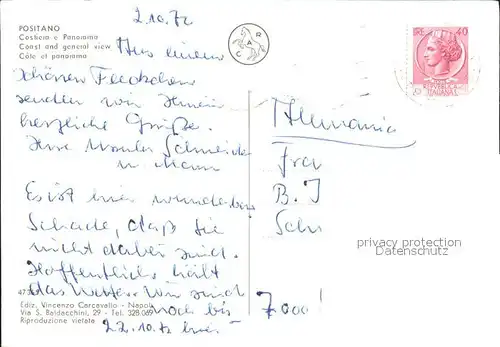 POSITANO
Costiera e Panorama
Coast and general view
Côte et panorama
2.10.72
C A R
LIRE 40
Aus einem
schönen Fleckchen
senden wir Ihnen
herzliche Grüße.
Ihre Ursula Schneider
u. Mann
Es ist hier wunderbar
Schade, daß Sie
nicht dabei sind.
Hoffentlich hält
das Wetter. Wir sind
noch bis
22.10. hier
Alemania
Frau
B. J
Sch
7000
privacy protection
Datenschutz
Ediz. Vincenzo Carcavallo - Napoli
Via S. Baldacchini, 29 - Tel. 328.069
Riproduzione vietata